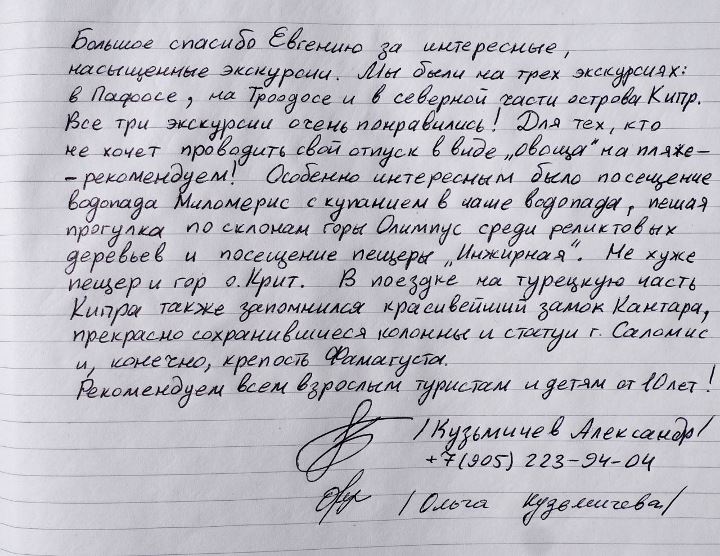 Большое спасибо Евгению за интересные,
насыщенные экскурсии. Мы были на трех экскурсиях:
в Пафосе, на Троодосе и в северной части острова Кипр.
Все три экскурсии очень понравились! Для тех, кто
не хочет проводить свой отпуск в виде „овоща“ на пляже-
-рекомендуем! Особенно интересным было посещение
водопада Миломерис с купанием в чаше водопада, пешая
прогулка по склонам горы Олимпус среди реликтовых
деревьев и посещение пещеры „Инжирная“. Не хуже
пещер и гор о. Крит. В поездке на турецкую часть
Кипра также запомнился красивейший замок Кантара,
прекрасно сохранившиеся колонны и статуи г. Саломис
и, конечно, крепость Фамагуста.
Рекомендуем всем взрослым туристам и детям от 10 лет!
/Кузьмичев Александр/
+7(905) 223-94-04
/Ольга Кузьмичева/